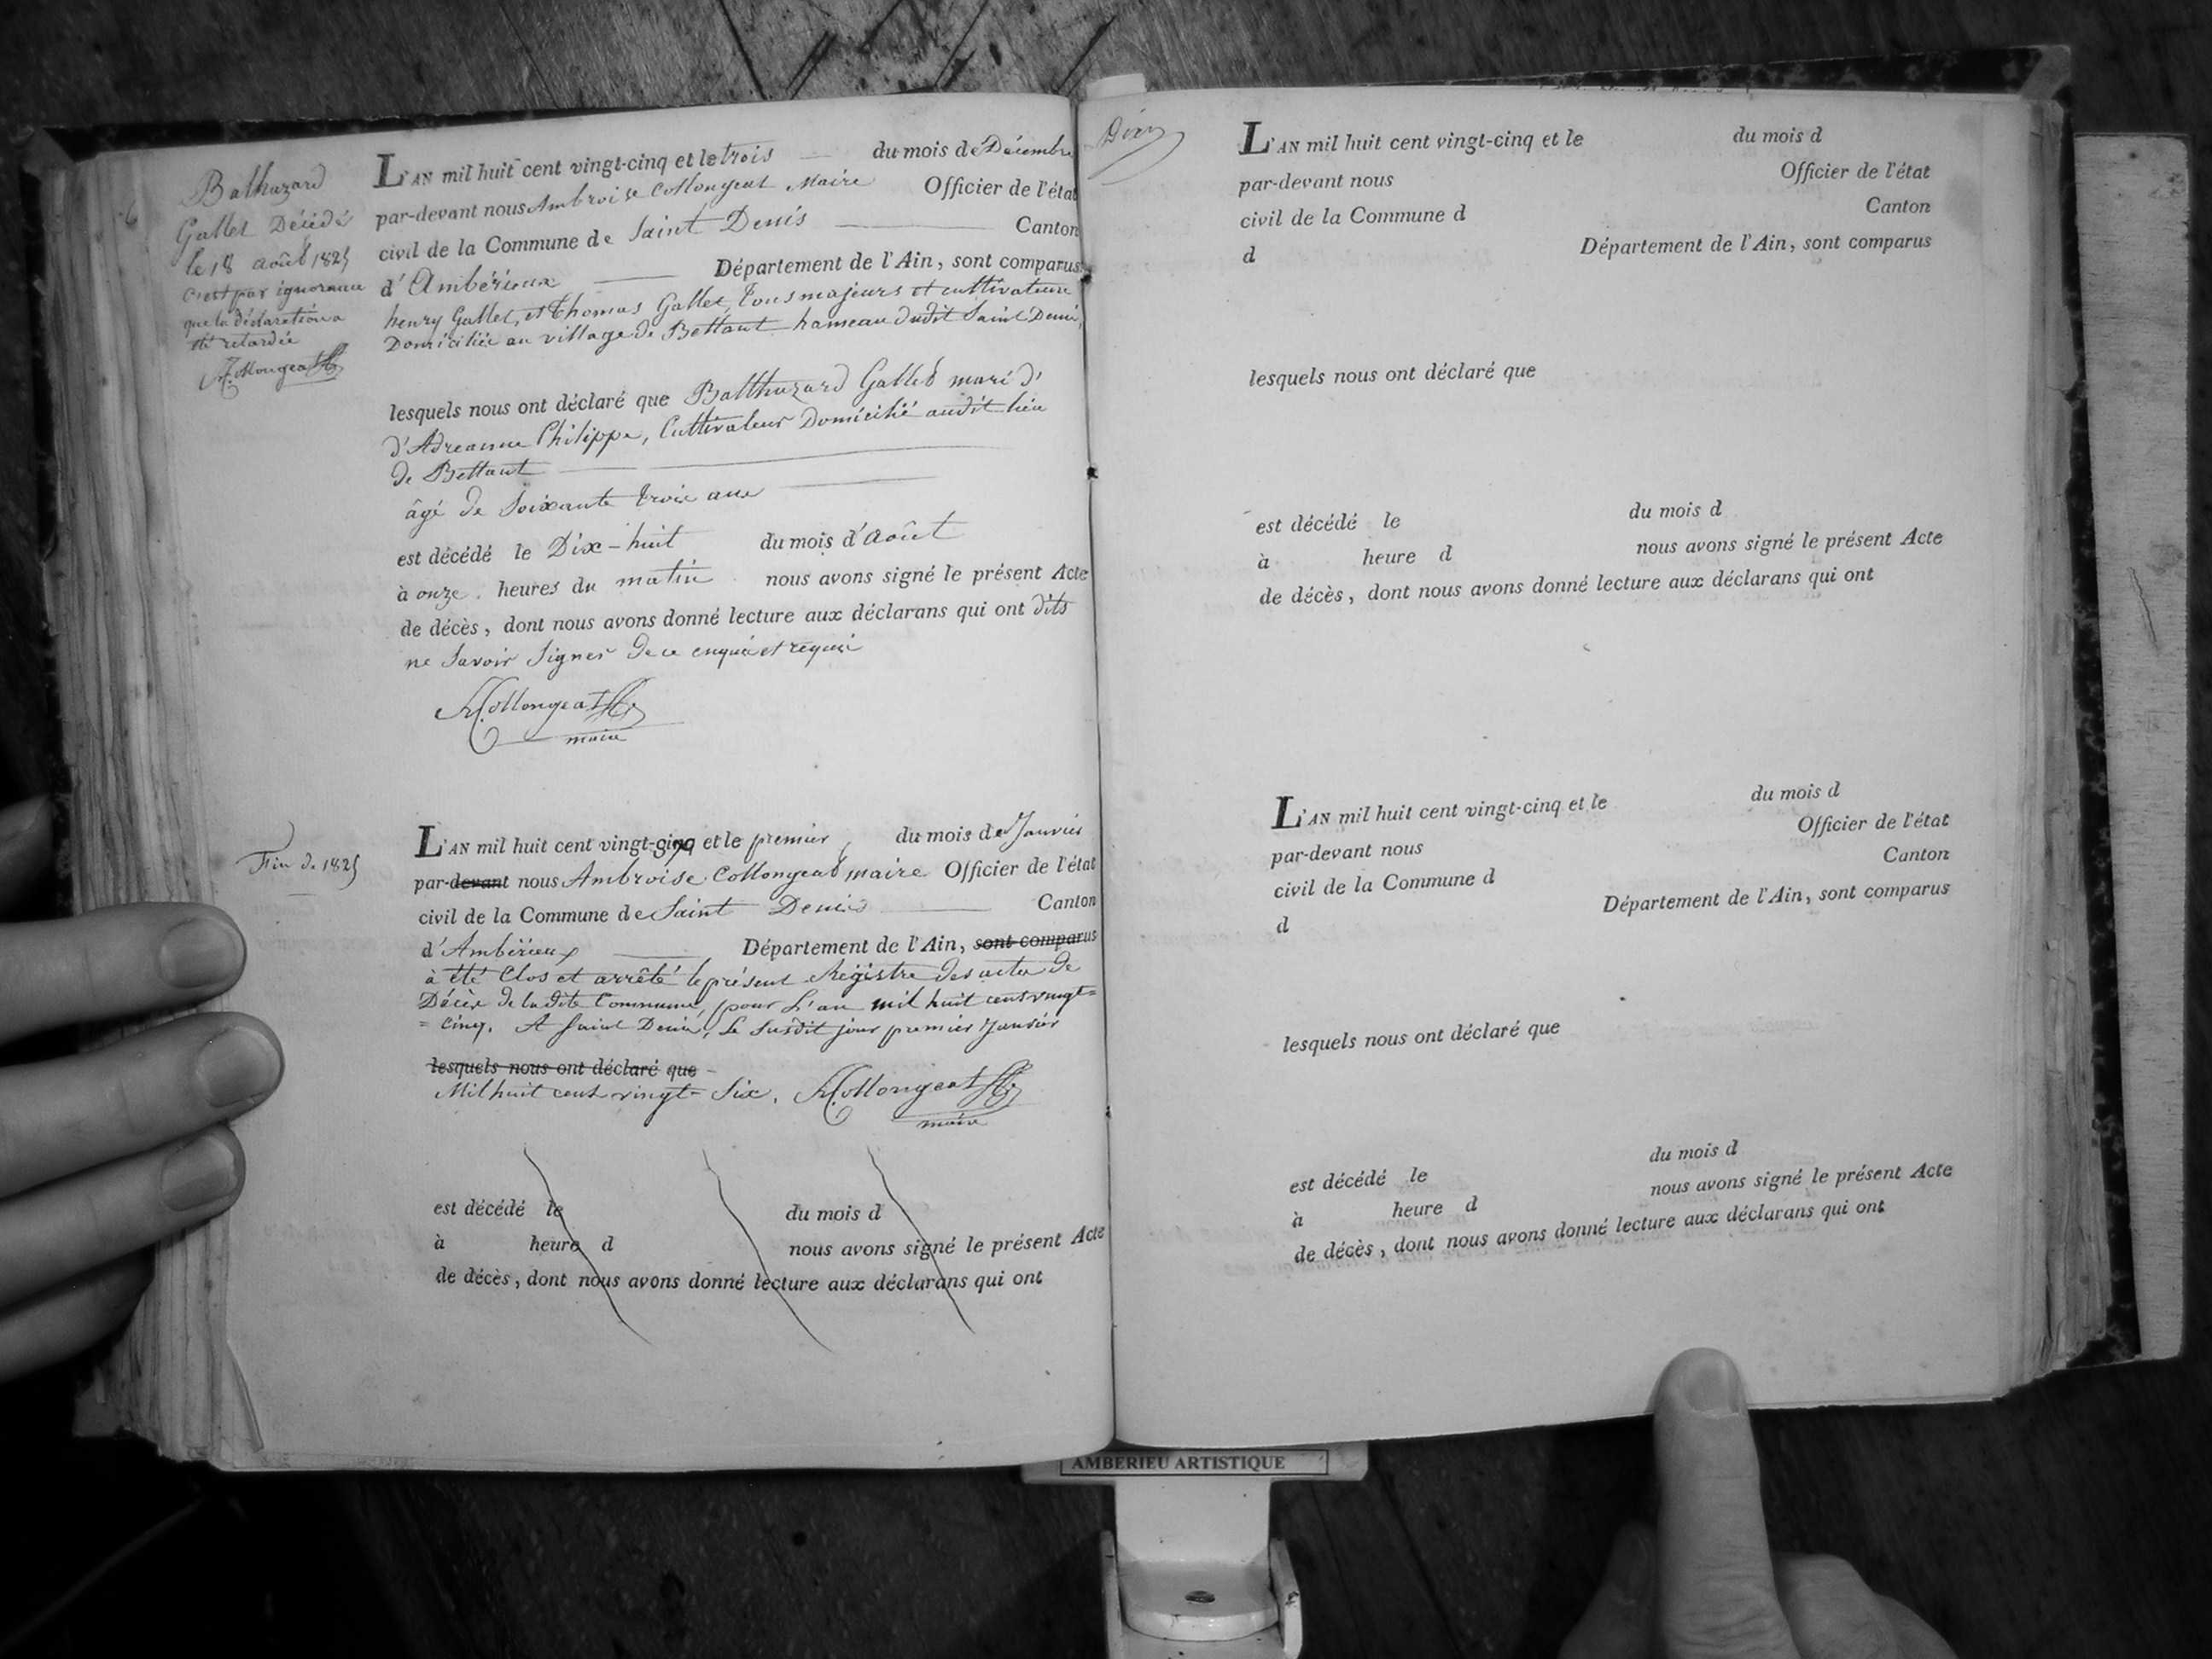 6
Balthazard
Gallet Décédé
le 18 août 1825
c'est par ignorance
que la déclaration a
été retardée
Collongeat
L'AN mil huit cent vingt-cinq et le trois du mois de Décembre
par-devant nous Ambroise Collongeat Maire Officier de l'état
civil de la Commune de Saint Denis Canton
d'Ambérieux Département de l'Ain, sont comparus
henry Gallet, et Thomas Gallet, tous majeurs et cultivateurs
Domiciliés au village de Bettant hameau dudit Saint Denis,
lesquels nous ont déclaré que Balthazard Gallet mari d'
d'Adreanne Philippe, Cultivateur Domicilié audit lieu
de Bettant
âgé de Soixante trois ans
est décédé le Dix-huit du mois d'août
à onze heures du matin nous avons signé le présent Acte
de décès, dont nous avons donné lecture aux déclarans qui ont dits
ne Savoir Signer de ce enquis et requis
Collongeat
maire
Fin de 1825
L'AN mil huit cent vingt-six et le premier, du mois de Janvier
par-devant nous Ambroise Collongeat maire Officier de l'état
civil de la Commune de Saint Denis Canton
d'Ambérieux Département de l'Ain, sont comparus
à été Clos et arrêté le présent Régistre des actes de
Décès de la dite Commune, pour L'an mil huit cent vingt=
=cinq. A Saint Denis, Le Susdit jour premier Janvier
lesquels nous ont déclaré que
Mil huit cent vingt-Six. Collongeat
maire
est décédé le du mois d
à heure d nous avons signé le présent Acte
de décès, dont nous avons donné lecture aux déclarans qui ont
L'AN mil huit cent vingt-cinq et le du mois d
par-devant nous Officier de l'état
civil de la Commune d Canton
d Département de l'Ain, sont comparus
lesquels nous ont déclaré que
est décédé le du mois d
à heure d nous avons signé le présent Acte
de décès, dont nous avons donné lecture aux déclarans qui ont
L'AN mil huit cent vingt-cinq et le du mois d
par-devant nous Officier de l'état
civil de la Commune d Canton
d Département de l'Ain, sont comparus
lesquels nous ont déclaré que
est décédé le du mois d
à heure d nous avons signé le présent Acte
de décès, dont nous avons donné lecture aux déclarans qui ont
AMBERIEU ARTISTIQUE